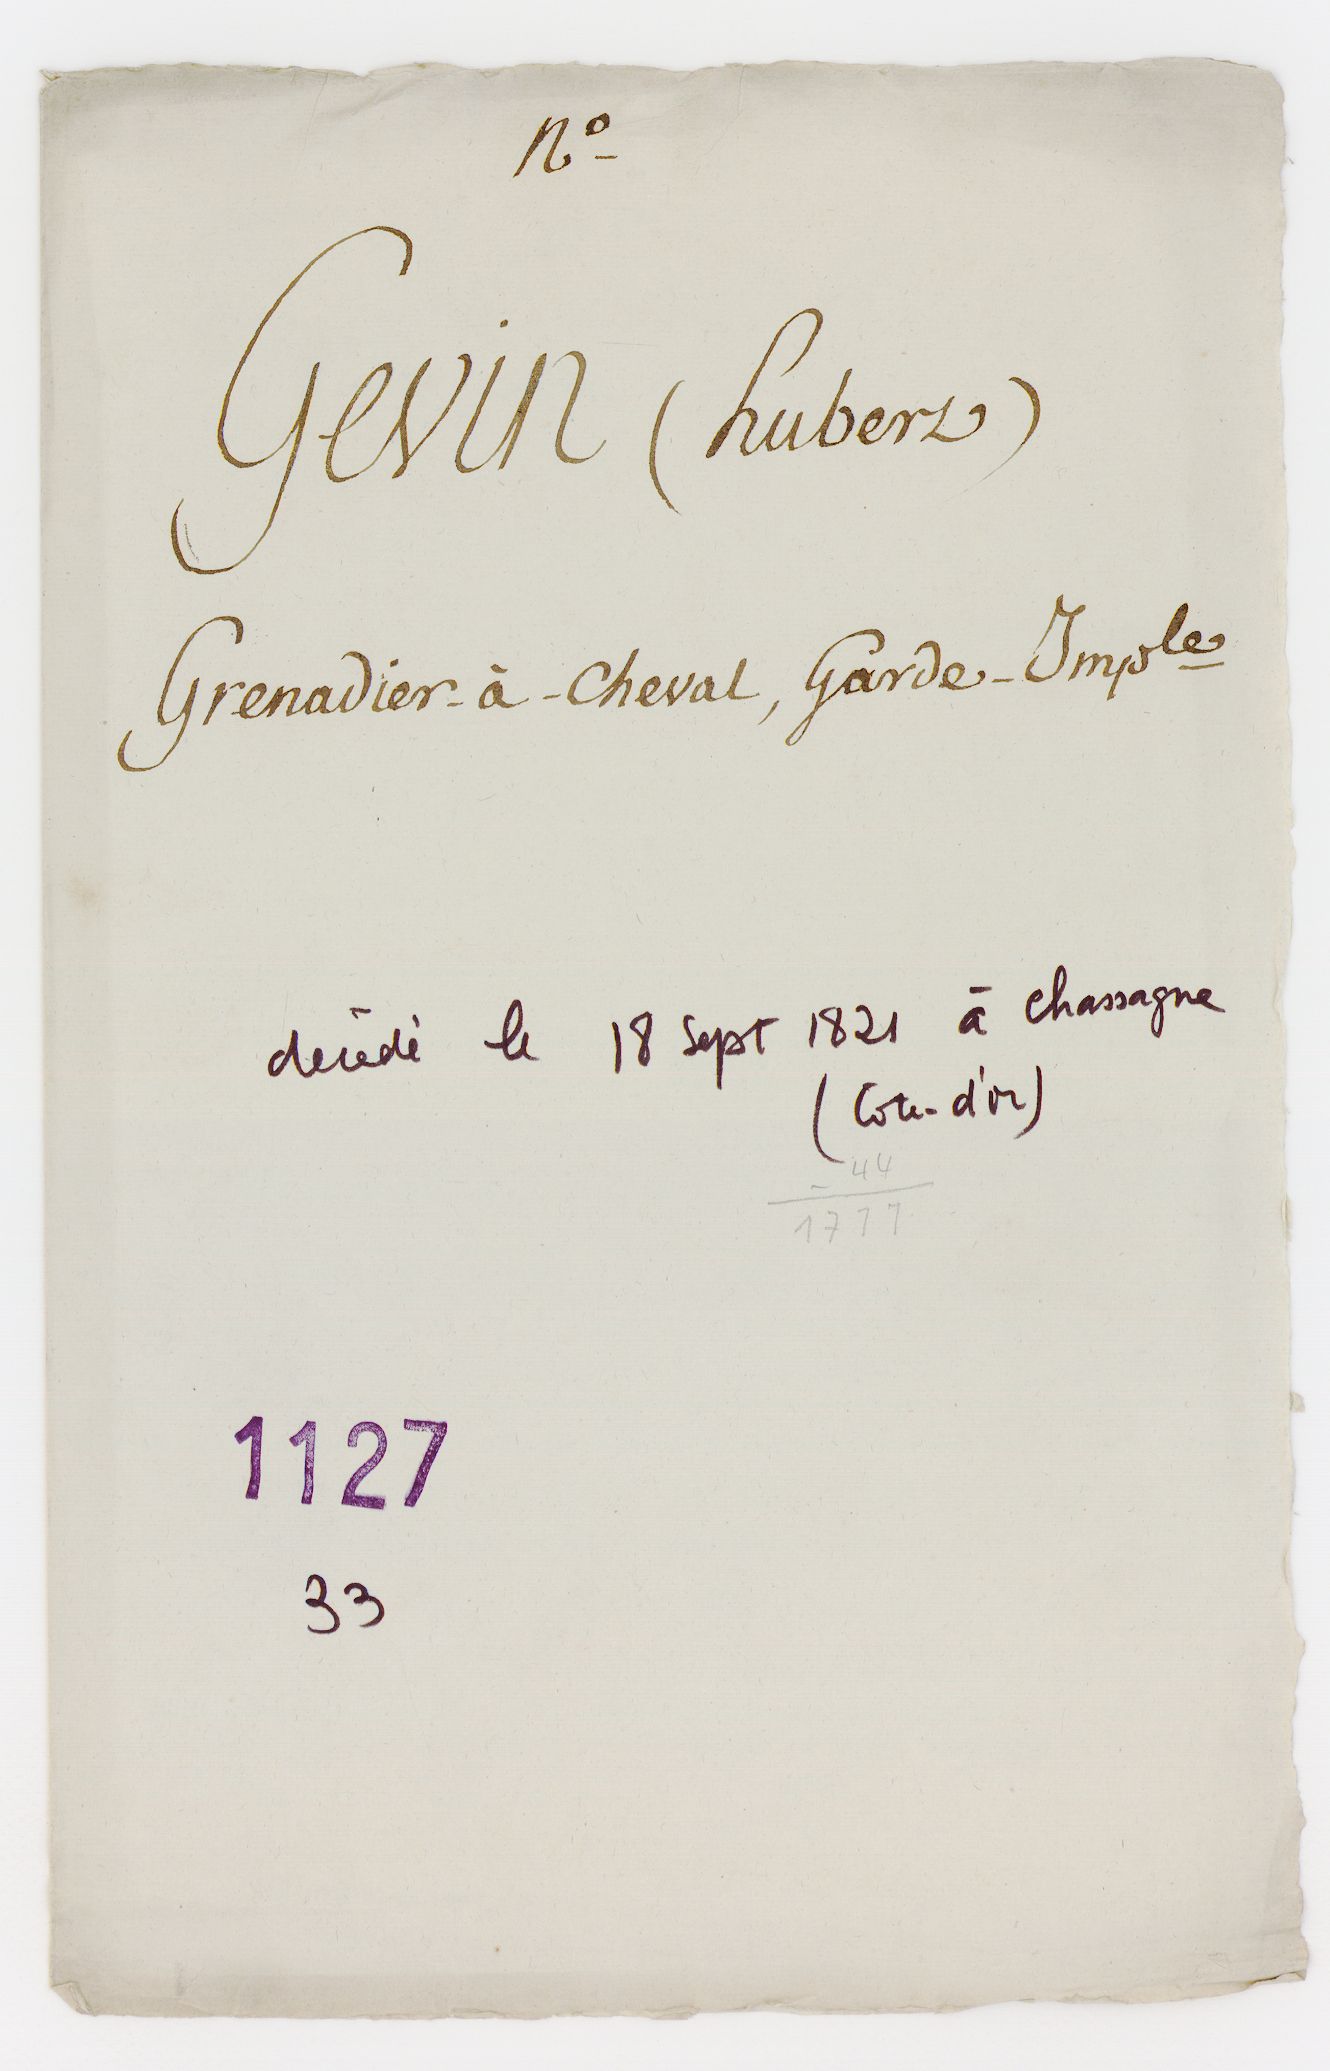 N°
Gevin (hubert)
Grenadier-à-Cheval, Garde-Imple
décédé le 18 Sept 1821 à Chassagne
(Côte-d'or)
- 44
1777
1127
33